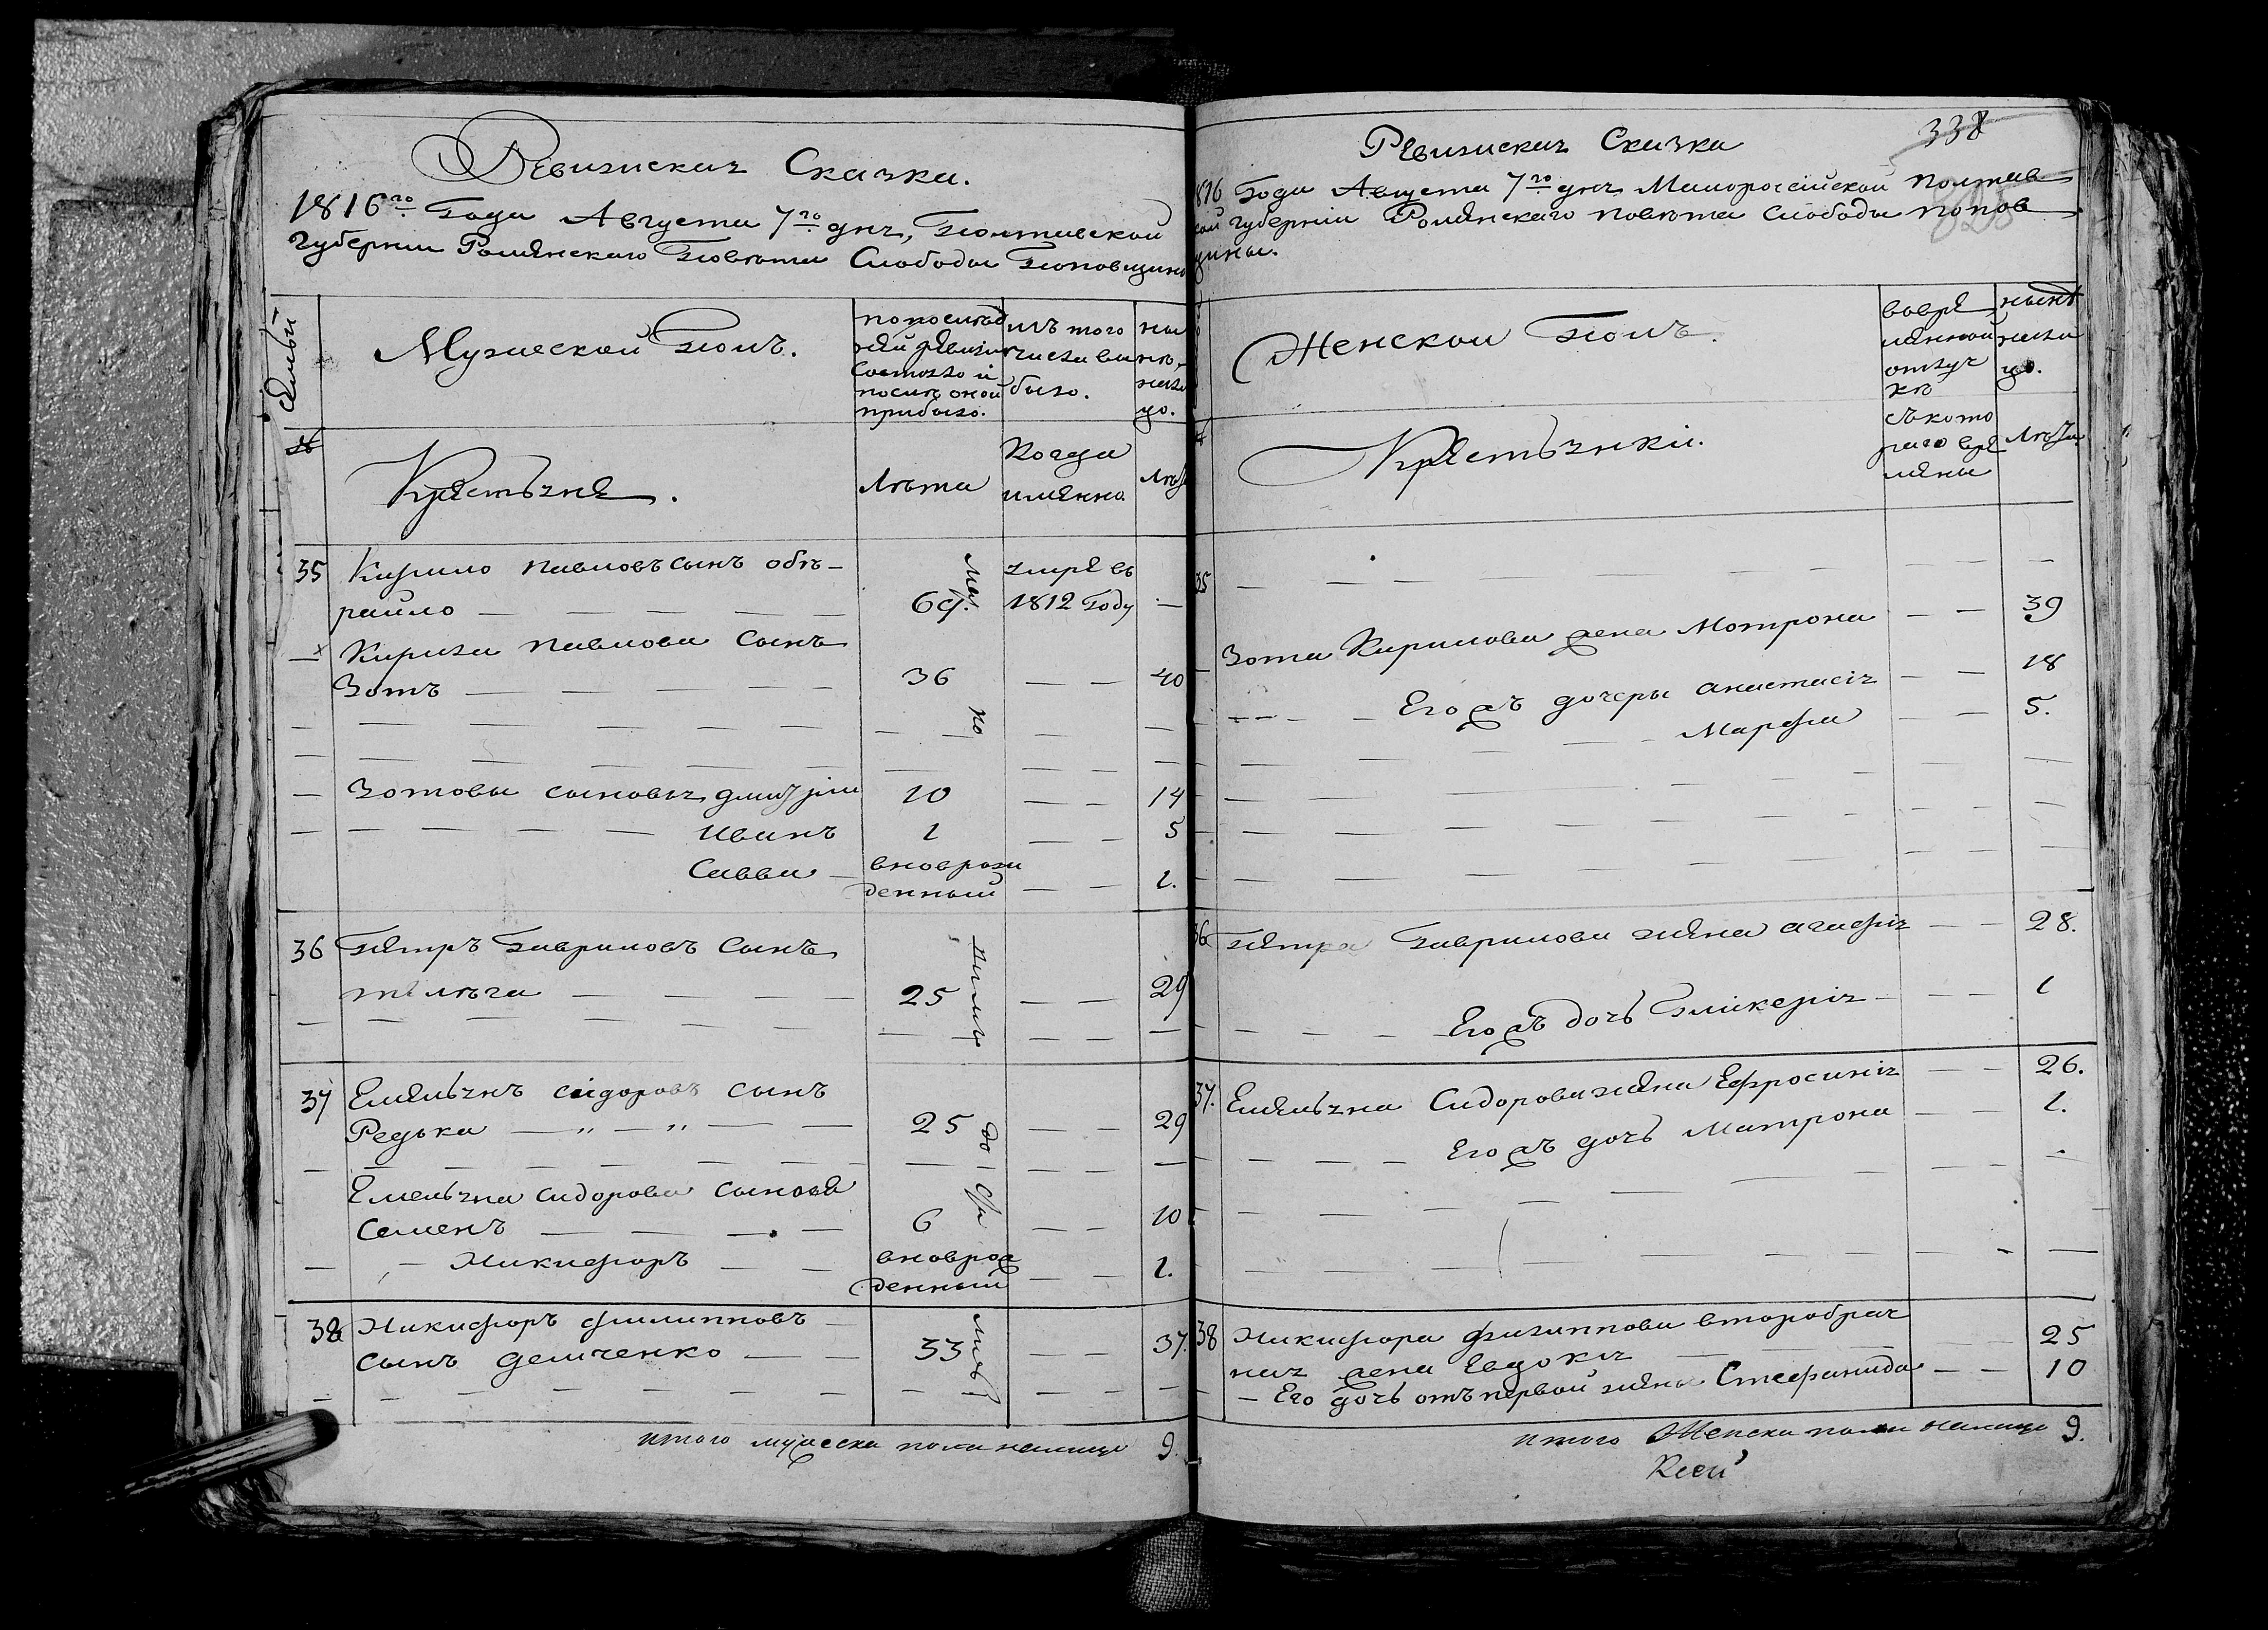 Ревизская Сказка.
1816го Года Августа 7го дня, Полтавской
Губернии Роменского Повѣта Слободы Поповщины
Мужеской Полъ.
по послѣд
ней ревизіи
состояло и
послѣ оной
прибыло.
изъ того
числа вы
было.
ны
нѣ
нали
цо.
Крестьяне.
Лѣта
Когда
именно.
Лѣта
35 Кирило Павловъ сынъ
69 умре въ
1812 Году
Кирила Павлова сынъ
Зотъ 36 40
Зотовы сыновья Дмитрій 10 14
Иванъ 1 5
Савва вноврож
денный 1.
36 Петръ Гавриловъ сынъ
25 29
37 Емельянъ Сидоровъ сынъ
Редька 25 29
Емельяна Сидорова сыновья
Семенъ 6 10
Никифоръ вноврож
денный 1.
38 Никифоръ Филипповъ
сынъ Демченко 33 37.
итого мужеска пола налицо 9.
Ревизская Сказка
338
1816 Года Августа 7го дня Малоросійской Полтав
ской Губерніи Роменскаго повѣта Слободы Попов
щины.
Женской Полъ.
вовре
менной
отлуч
кѣ
нынѣ
нали
цо.
Крестьянки.
съ кото
раго вре
мены
Лѣта
35
Зота Кирилова жена Мотрона 39
Его жъ дочеры Анастасія 18
Марфа 5.
36 Петра Гаврилова жена Агафія 28.
Его жъ дочь Гликерія 1
37. Емельяна Сидорова жена Ефросинія 26.
Его жъ дочь Матрона 1.
38 Никифора Филиппова второбрач
ная жена Евдокія 25
Его дочь отъ первой жены Стефанида 10
итого Женска пола налицо 9.